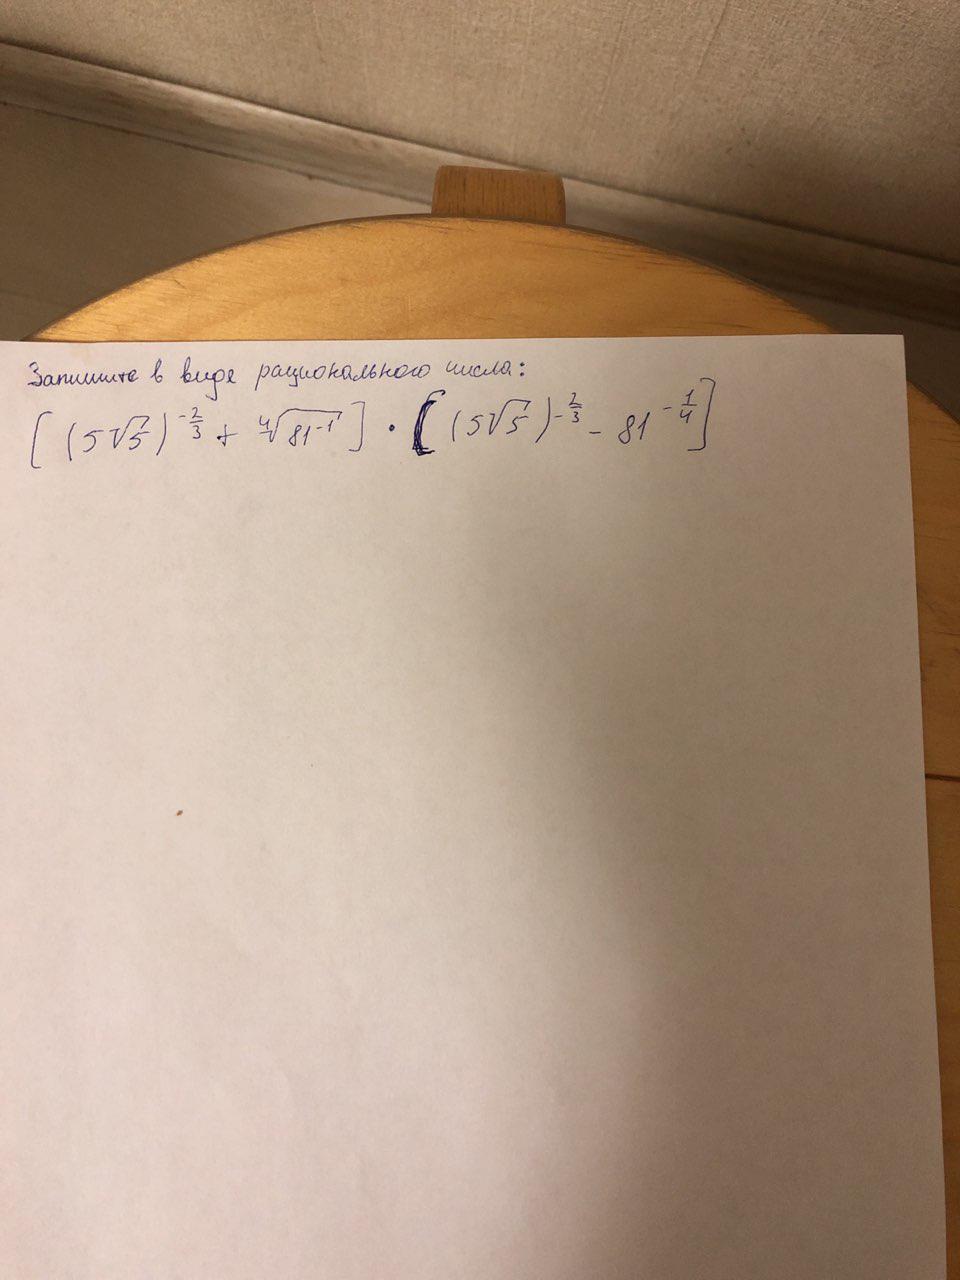 Запишите в виде рационального числа:
[(5√5)^{-2/3} + ∜(81^{-1})] · [(5√5)^{-2/3} - 81^{-1/4}]